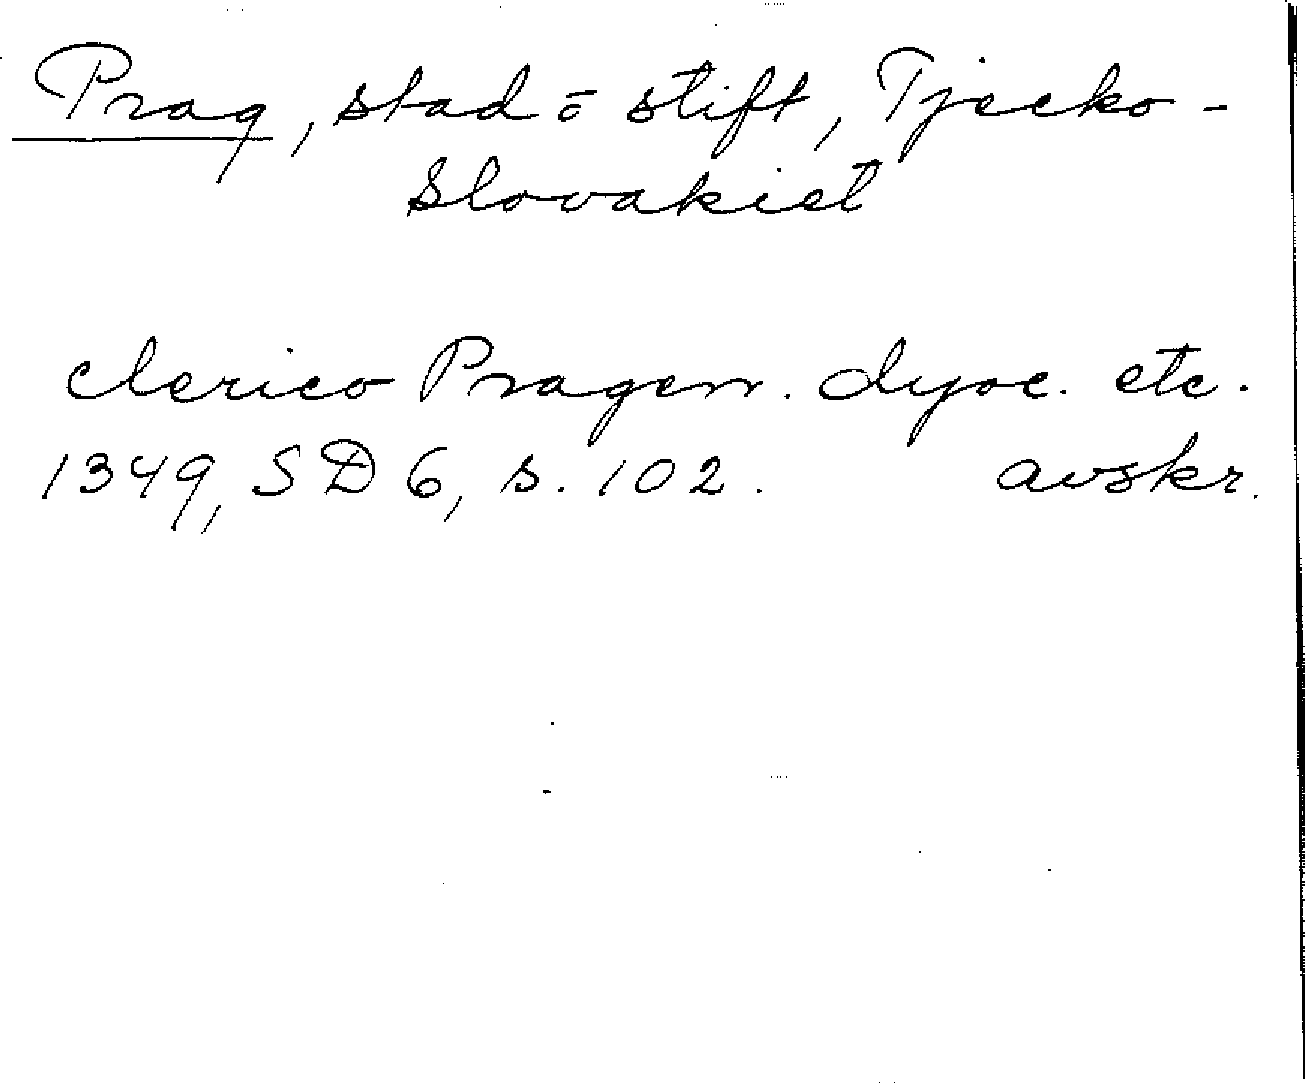 Prag, stad o stift, Tjecko-
Slovakiet
clerico Pragen. dyoc. etc.
1349, SD 6, s. 102. avskr.